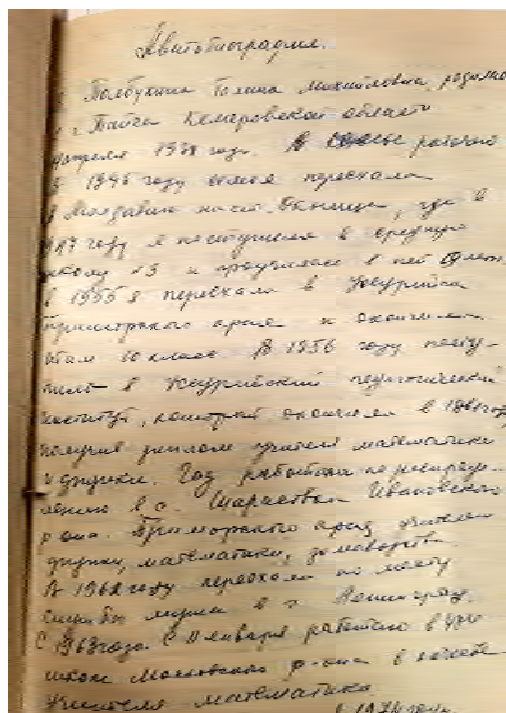 Автобиография.
Толбухина Галина Михайловна, родилась
г. Тайга Кемеровской области
апреля 1939 года. В семье рабочей
В 1946 году семья переехала
в Молдавию на ст. Окница, где в
1947 году я поступила в среднюю
школу №3 и проучилась в ней
В 1955 я переехала в Уссурийск
Приморского края и окончила
там 10 класс. В 1956 году посту-
пила в Уссурийский педагогический
институт, который окончила в 1961 году
получив диплом учителя математики
и физики. Год работала по распреде-
лению в с. Ивановского
р-она Приморского края учителем
физики, математики, домоводства.
В 1962 году переехала по месту
службы мужа в г. Ленинград.
С 1963 года С 11 января работаю в
школе Московского р-она в качестве
учителя математики
в 1971 году